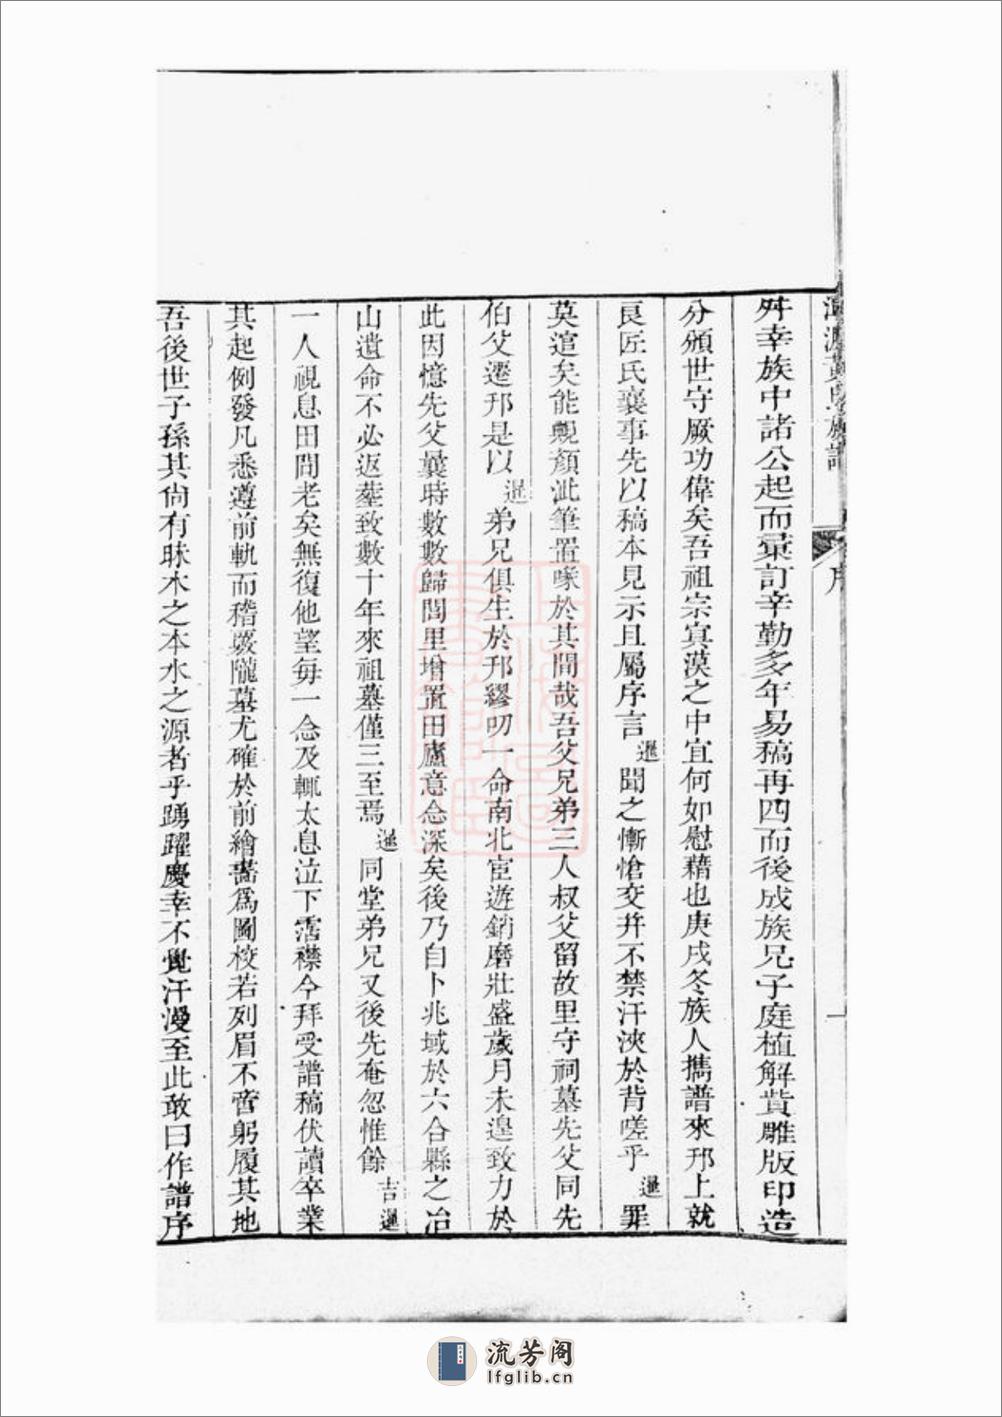 族譜
序
一
舛幸族中諸公起而彙訂辛勤多年易稿再四而後成族兄子庭植解貲雕版印造
分頒世守厥功偉矣吾祖宗寘漠之中宜何如慰藉也庚戌冬族人攜譜來邗上就
良匠氏襄事先以稿本見示且屬序言暹聞之慚愴交并不禁汗浹於背嗟乎暹罪
莫逭矣能覿顏泚筆置喙於其間哉吾父兄弟三人叔父留故里守祠墓先父同先
伯父遷邗是以暹弟兄俱生於邗繆叨一命南北宦遊銷磨壯盛歲月未遑致力於
此因憶先父曩時數數歸閭里增置田廬意念深矣後乃自卜兆域於六合縣之冶
山遺命不必返塟致數十年來祖墓僅三至焉暹同堂弟兄又後先奄忽惟餘吉暹
一人視息田間老矣無復他望每一念及輒太息泣下霑襟今拜受譜稿伏讀卒業
其起例發凡悉遵前軌而稽覈隴墓尤確於前繪畵爲圖校若列眉不啻躬履其地
吾後世子孫其尚有昧木之本水之源者乎踴躍慶幸不覺汗漫至此敢曰作譜序
流芳阁
lfglib.cn